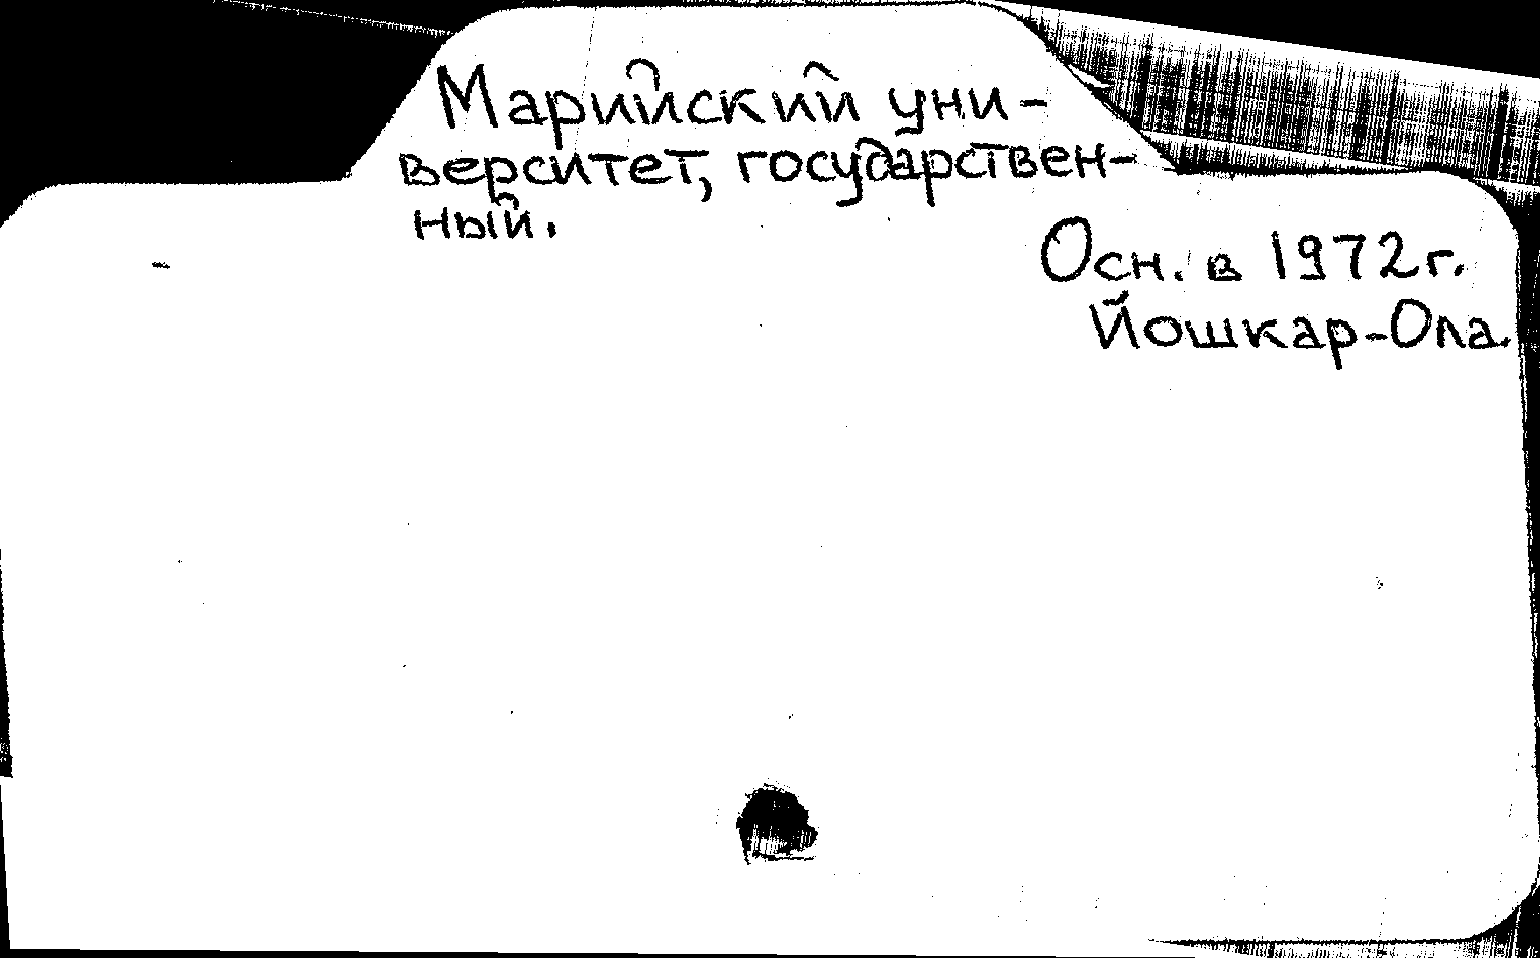 Марийский уни-
верситет, государствен-
ный.
Осн. в 1972г.
Йошкар-Ола.